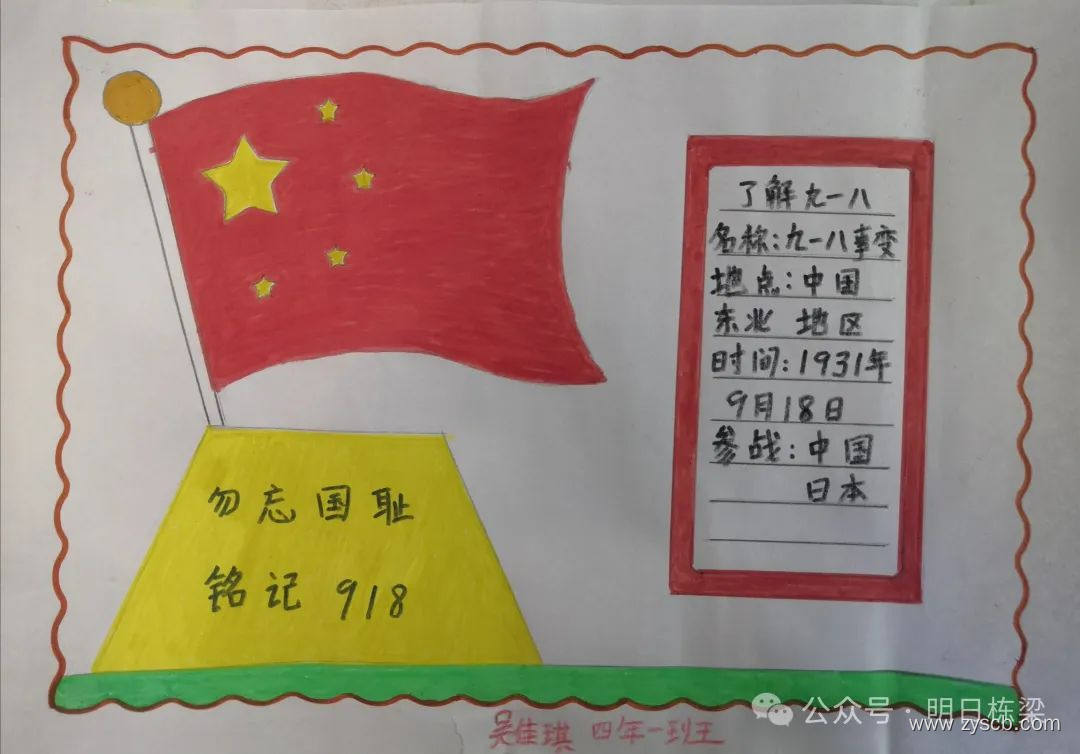 勿忘国耻
铭记918
了解九一八
名称:九一八事变
地点:中国
东北 地区
时间:1931年
9月18日
参战:中国
日本
吴佳琪 四年一班王
公众号·明日栋梁
www.zyscb.com